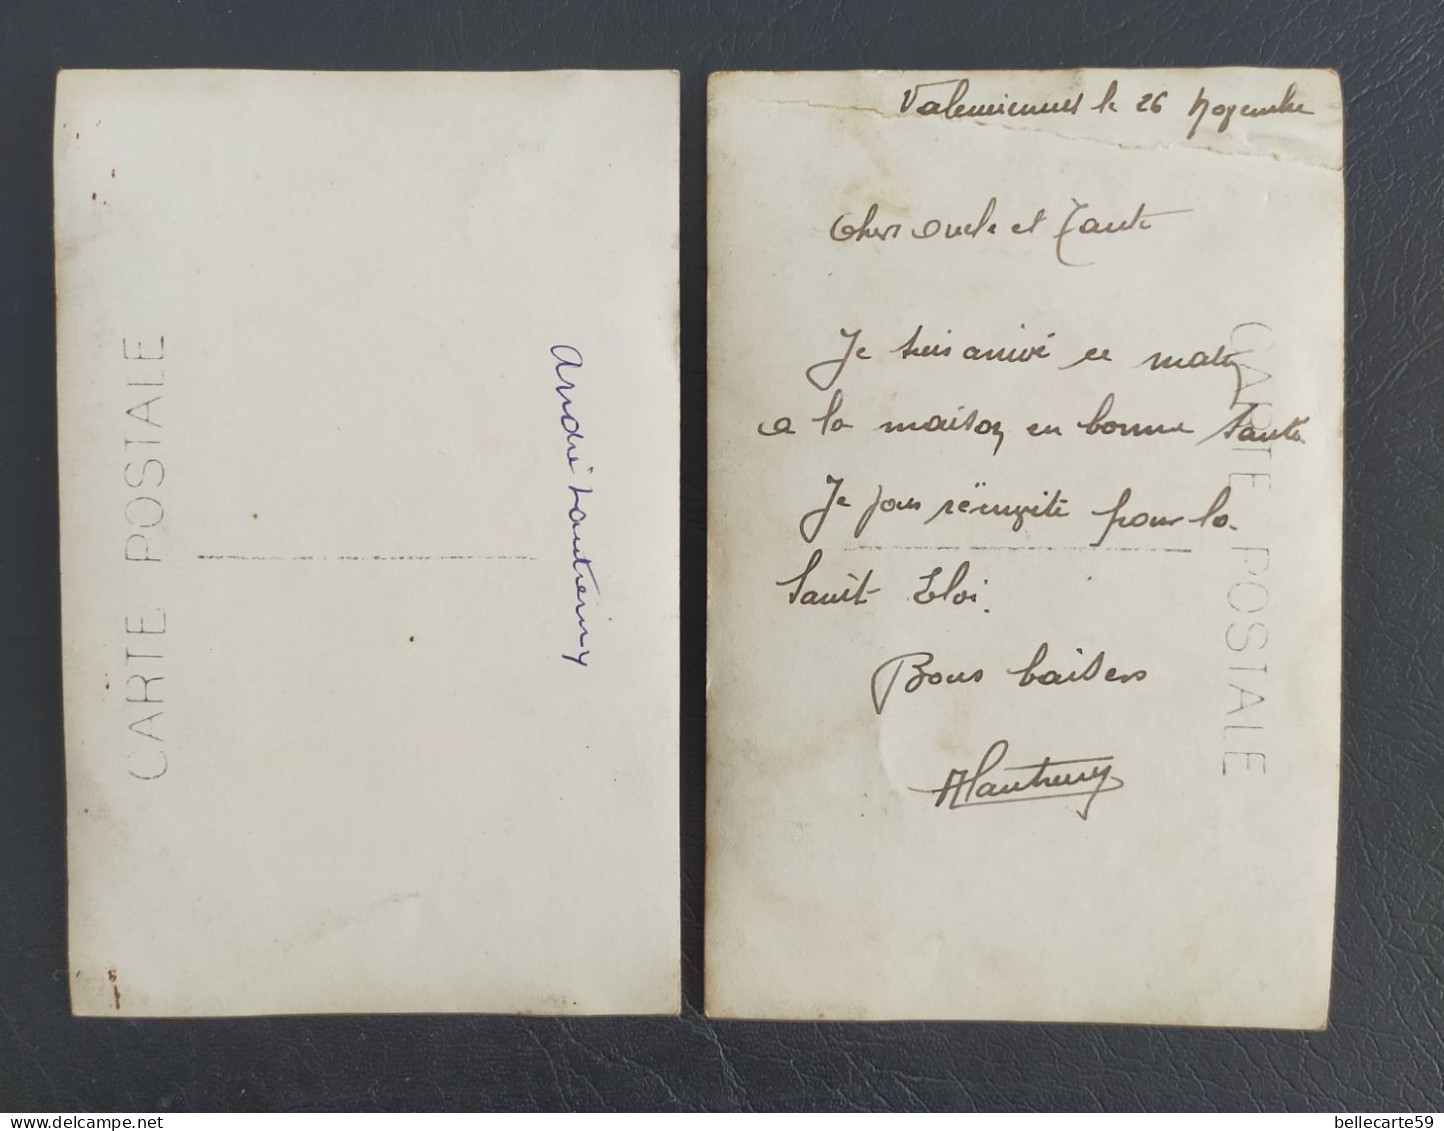 CARTE POSTALE
André Lautremy
Valenciennes le 26 Novembre
Chers Oncle et Tante
Je suis arrivé ce matin
a la maison en bonne santé
Je pour la
Saint Eloi.
Bons baisers
ALautremy
CARTE POSTALE
bellecarte59